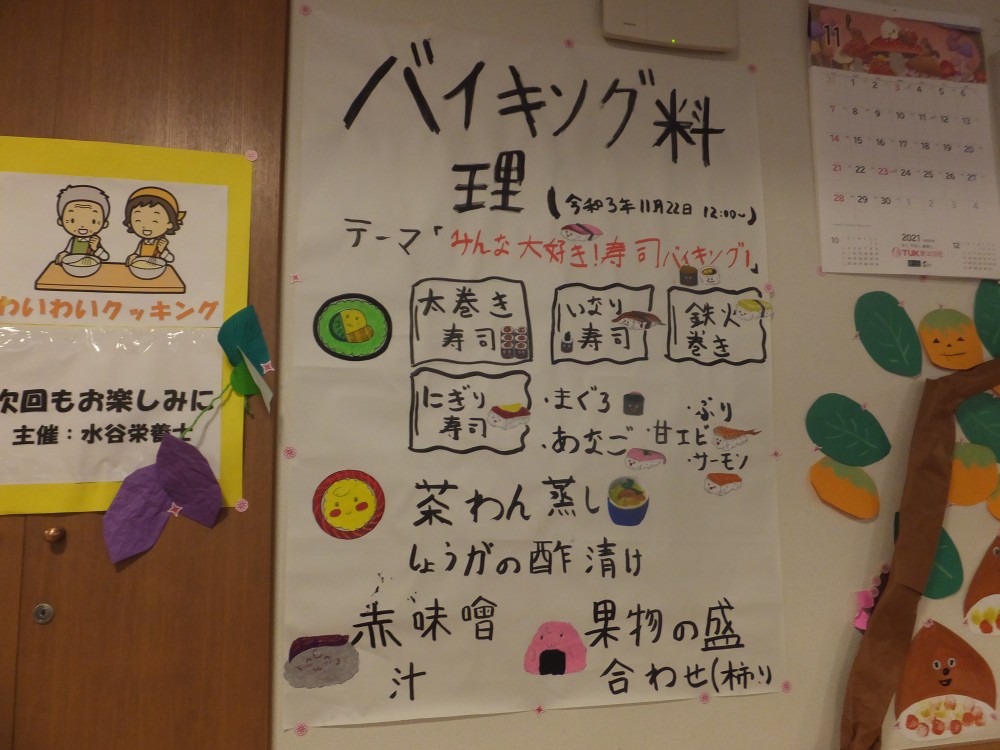 バイキング料
理(令和3年11月22日 12:00〜)
テーマ「みんな大好き!寿司バイキング!」
太巻き
寿司
いなり
寿司
鉄火
巻き
にぎり
寿司
・まぐろ
・あなご
・ぶり
甘エビ
・サーモン
茶わん蒸し
しょうがの酢漬け
赤味噌
汁
果物の盛
合わせ(柿り
わいわいクッキング
次回もお楽しみに
主催:水谷栄養士
11
1 2 3 4 5 6
7 8 9 10 11 12 13
14 15 16 17 18 19 20
21 22 23 24 25 26 27
28 29 30 1 2 3 4
10
2021
12
TUK